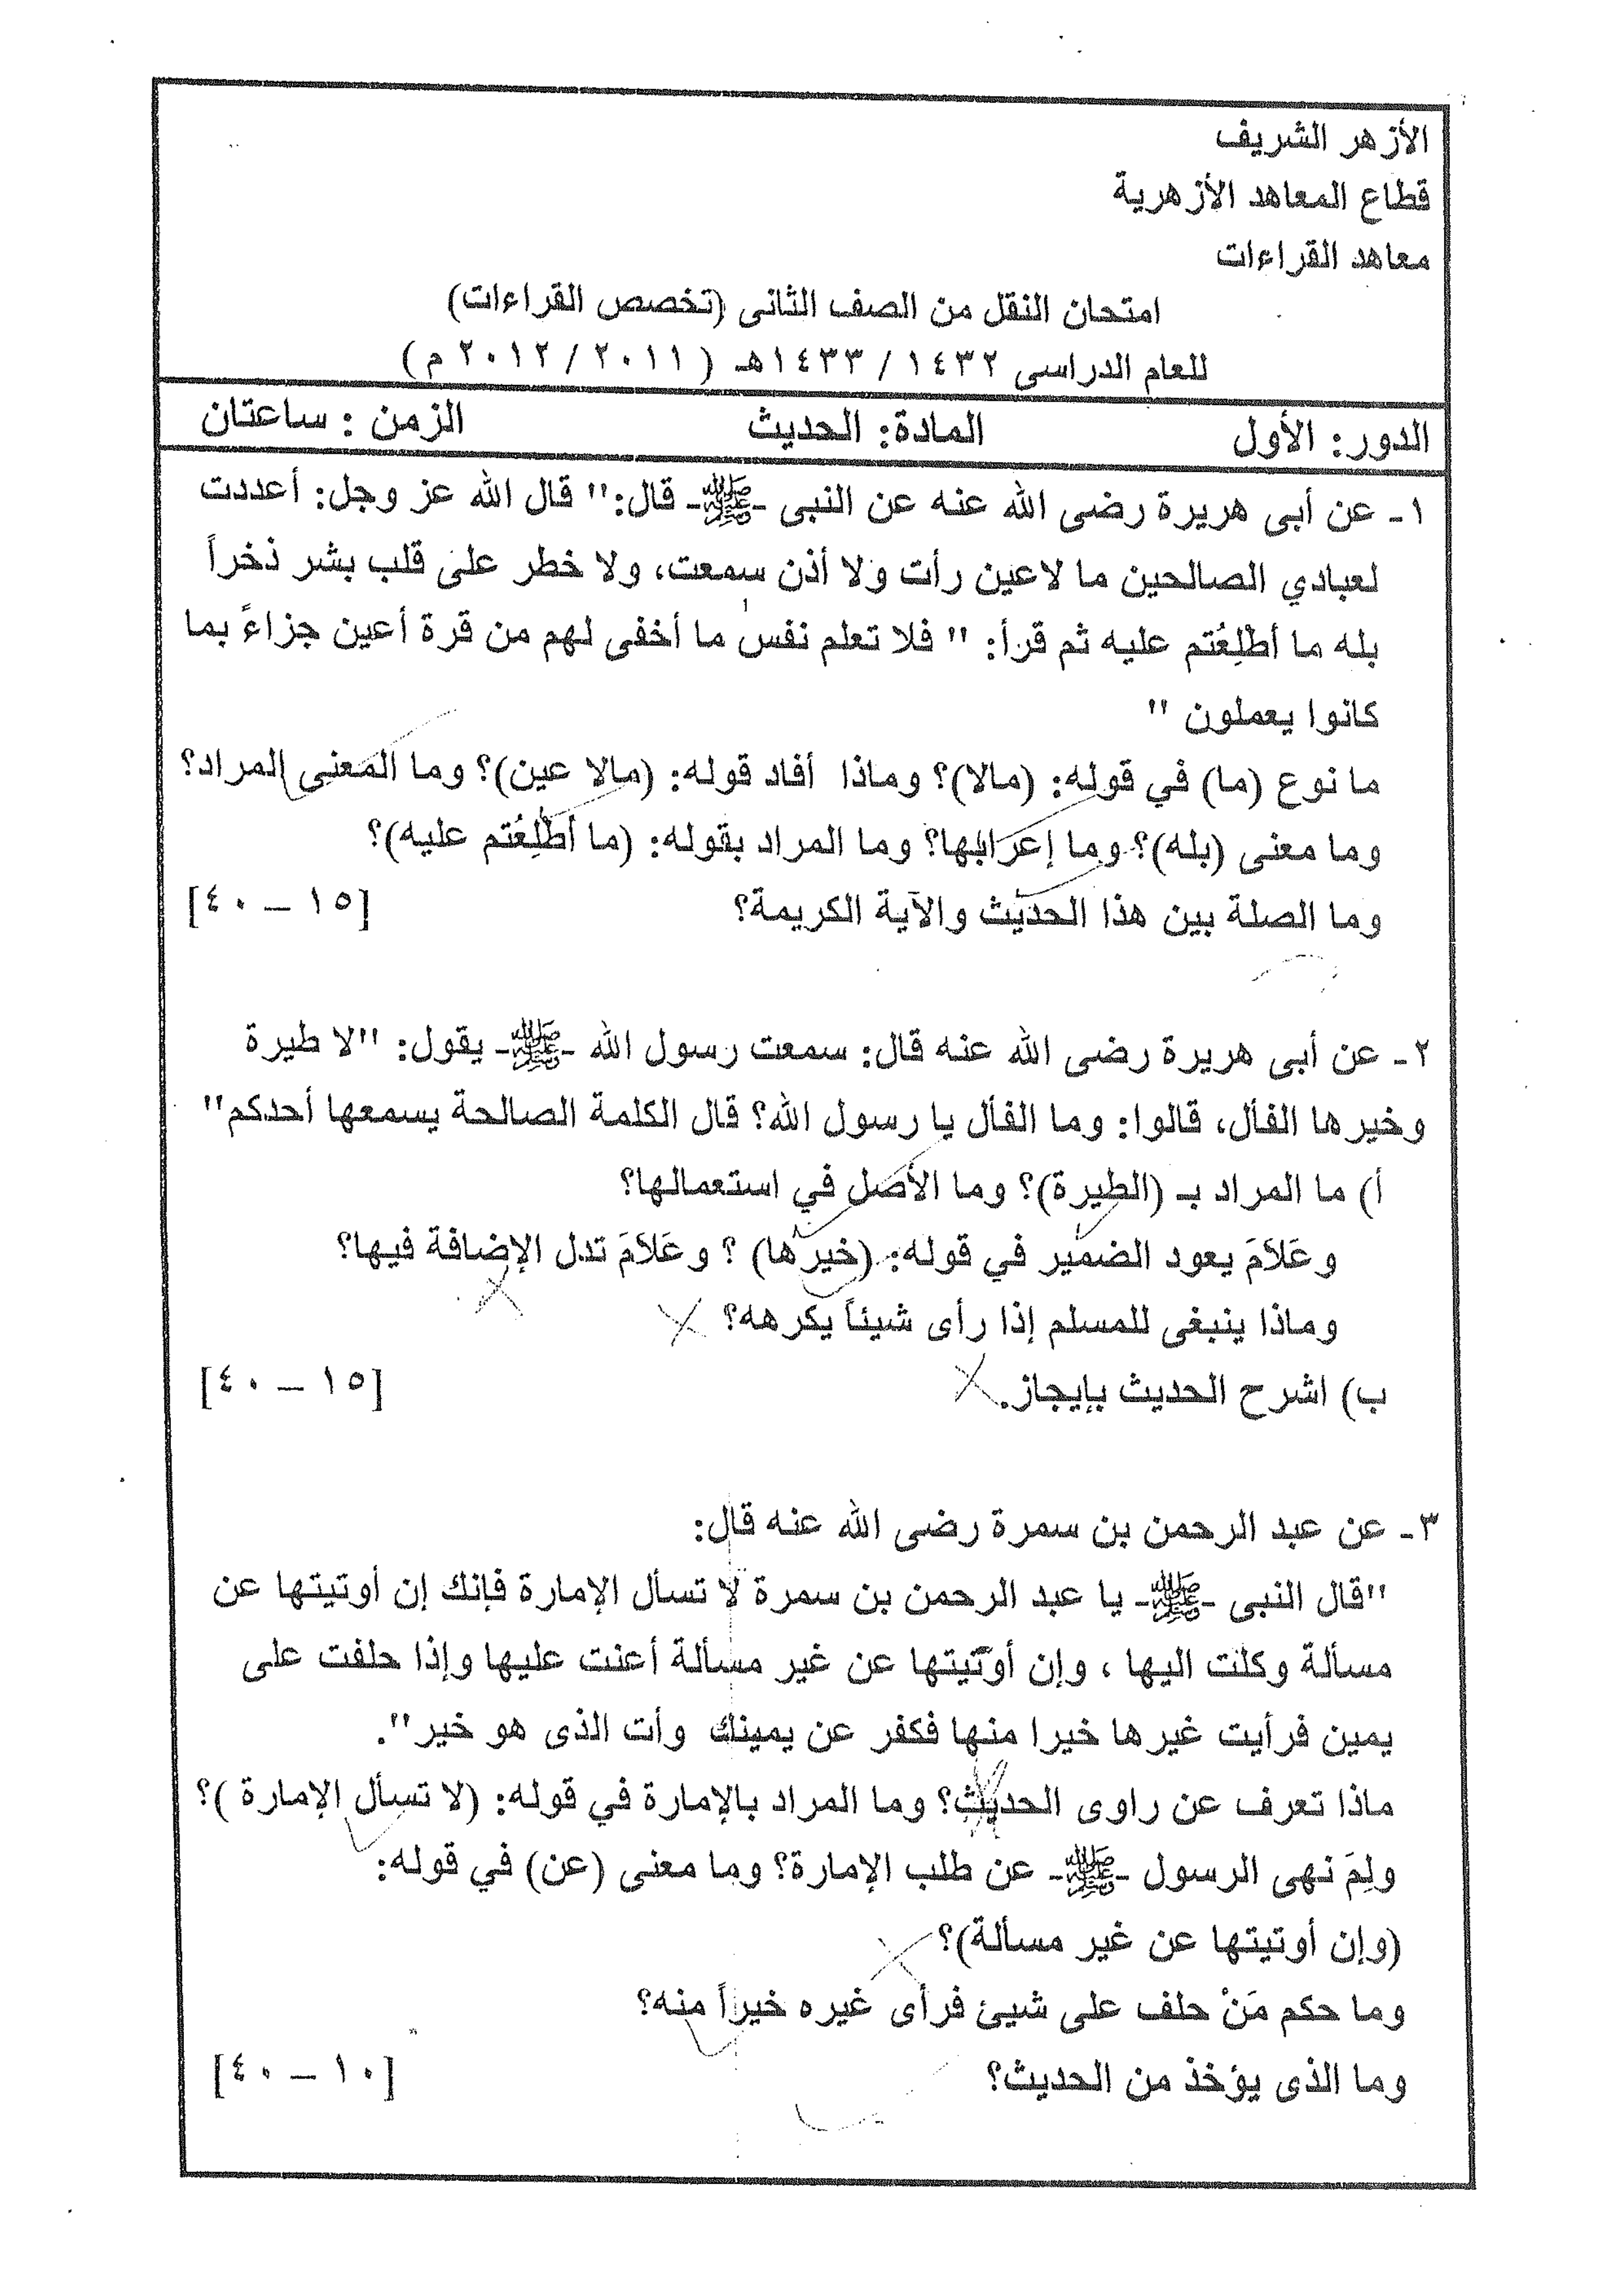 الأزهر الشريف
قطاع المعاهد الأزهرية
معاهد القراءات
امتحان النقل من الصف الثانى (تخصص القراءات)
للعام الدراسى ١٤٣٢ / ١٤٣٣هـ ( ٢٠١١ / ٢٠١٢ م )
الدور: الأول المادة: الحديث الزمن : ساعتان
١- عن أبى هريرة رضى الله عنه عن النبى -ﷺ- قال:" قال الله عز وجل: أعددت
لعبادي الصالحين ما لاعين رأت ولا أذن سمعت، ولا خطر على قلب بشر ذخراً
بله ما أطْلِعُتم عليه ثم قرأ: " فلا تعلم نفس ما أخفى لهم من قرة أعين جزاءً بما
كانوا يعملون "
ما نوع (ما) في قوله: (مالا)؟ وماذا أفاد قوله: (مالا عين)؟ وما المعنى المراد؟
وما معنى (بله)؟ وما إعرابها؟ وما المراد بقوله: (ما أطْلِعُتم عليه)؟
وما الصلة بين هذا الحديث والآية الكريمة؟ [١٥ – ٤٠]
٢- عن أبى هريرة رضى الله عنه قال: سمعت رسول الله -ﷺ- يقول: "لا طيرة
وخيرها الفأل، قالوا: وما الفأل يا رسول الله؟ قال الكلمة الصالحة يسمعها أحدكم"
أ) ما المراد بـ (الطيرة)؟ وما الأصل في استعمالها؟
وعَلاَمَ يعود الضمير في قوله: (خيرها) ؟ وعَلاَمَ تدل الإضافة فيها؟
وماذا ينبغى للمسلم إذا رأى شيئاً يكرهه؟
ب) اشرح الحديث بإيجاز. [١٥ – ٤٠]
٣- عن عبد الرحمن بن سمرة رضى الله عنه قال:
"قال النبى -ﷺ- يا عبد الرحمن بن سمرة لا تسأل الإمارة فإنك إن أوتيتها عن
مسألة وكلت اليها ، وإن أوتيتها عن غير مسألة أعنت عليها وإذا حلفت على
يمين فرأيت غيرها خيرا منها فكفر عن يمينك وأت الذى هو خير".
ماذا تعرف عن راوى الحديث؟ وما المراد بالإمارة في قوله: (لا تسأل الإمارة )؟
ولِمَ نهى الرسول -ﷺ- عن طلب الإمارة؟ وما معنى (عن) في قوله:
(وإن أوتيتها عن غير مسألة)؟
وما حكم مَنْ حلف على شيئ فرأى غيره خيراً منه؟
وما الذى يؤخذ من الحديث؟ [١٠ – ٤٠]